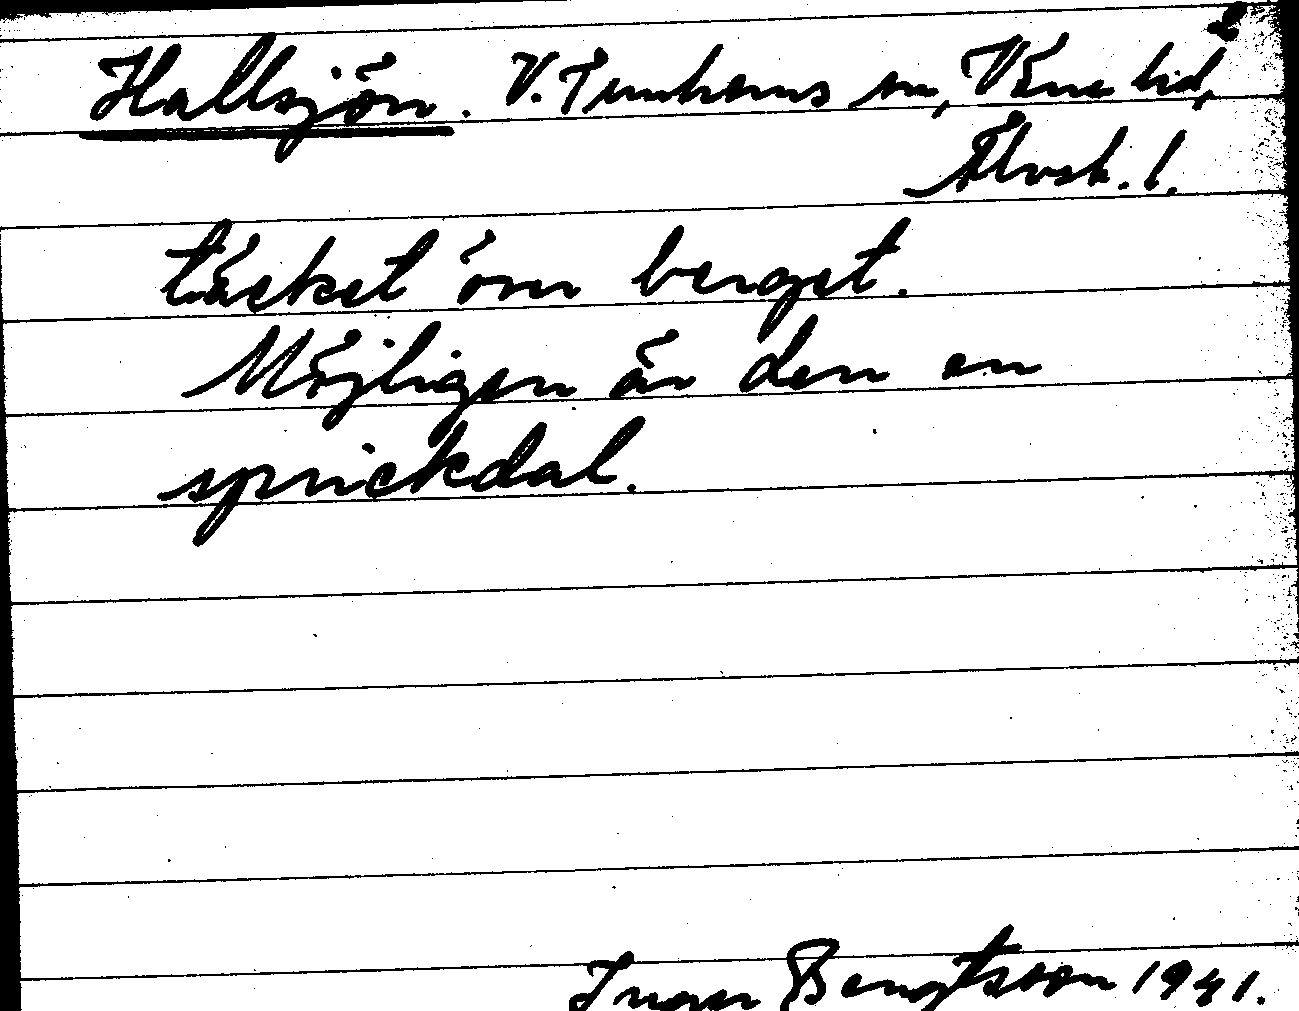 2
Hallsjön. V. Tunhems sn, Väne hd,
Älvsb. l.
täcket öm berget.
Möjligen är den en
sprickdal.
Ingvar Bengtsson 1941.